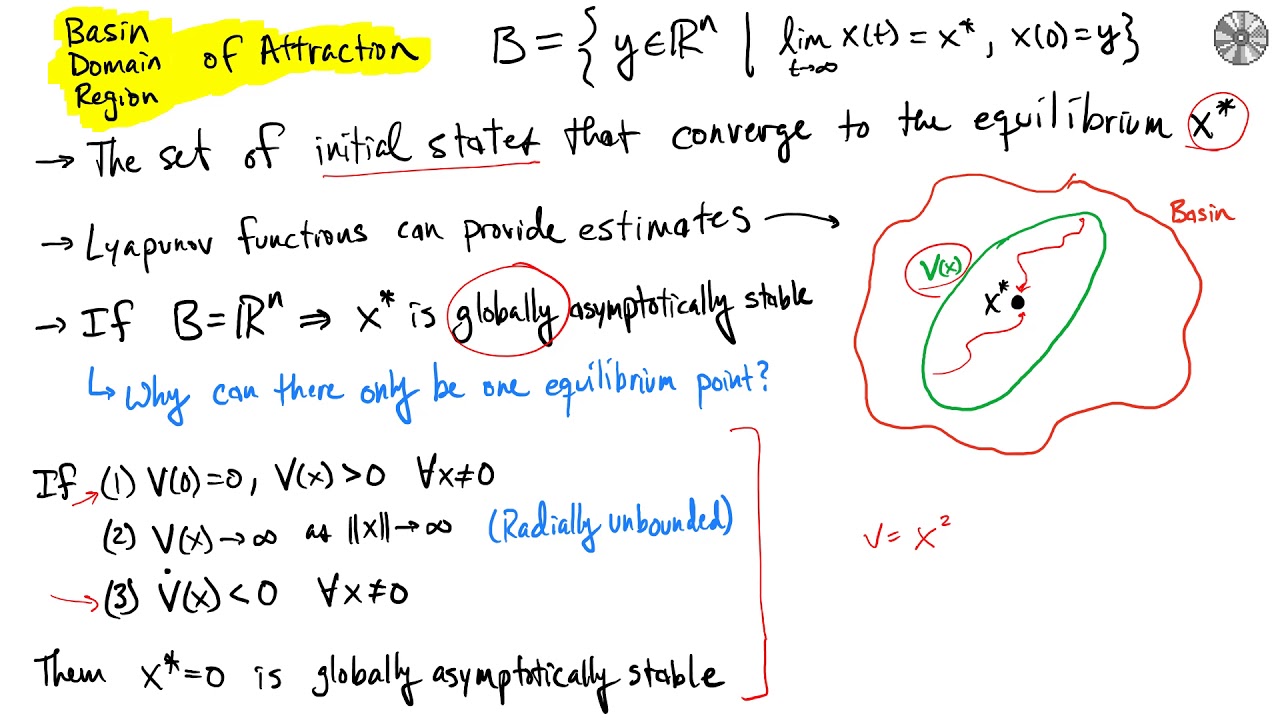 Basin
Domain of Attraction
Region
B = { y ∈ ℝⁿ | lim x(t) = x*, x(0) = y}
t→∞
→ The set of initial states that converge to the equilibrium x*
→ Lyapunov functions can provide estimates →
Basin
V(x)
x*
→ If B = ℝⁿ ⇒ x* is globally asymptotically stable
↳ Why can there only be one equilibrium point?
If → (1) V(0) = 0, V(x) > 0 ∀x≠0
(2) V(x) → ∞ as ||x|| → ∞ (Radially unbounded)
V = x²
→ (3) V̇(x) < 0 ∀x≠0
Then x* = 0 is globally asymptotically stable